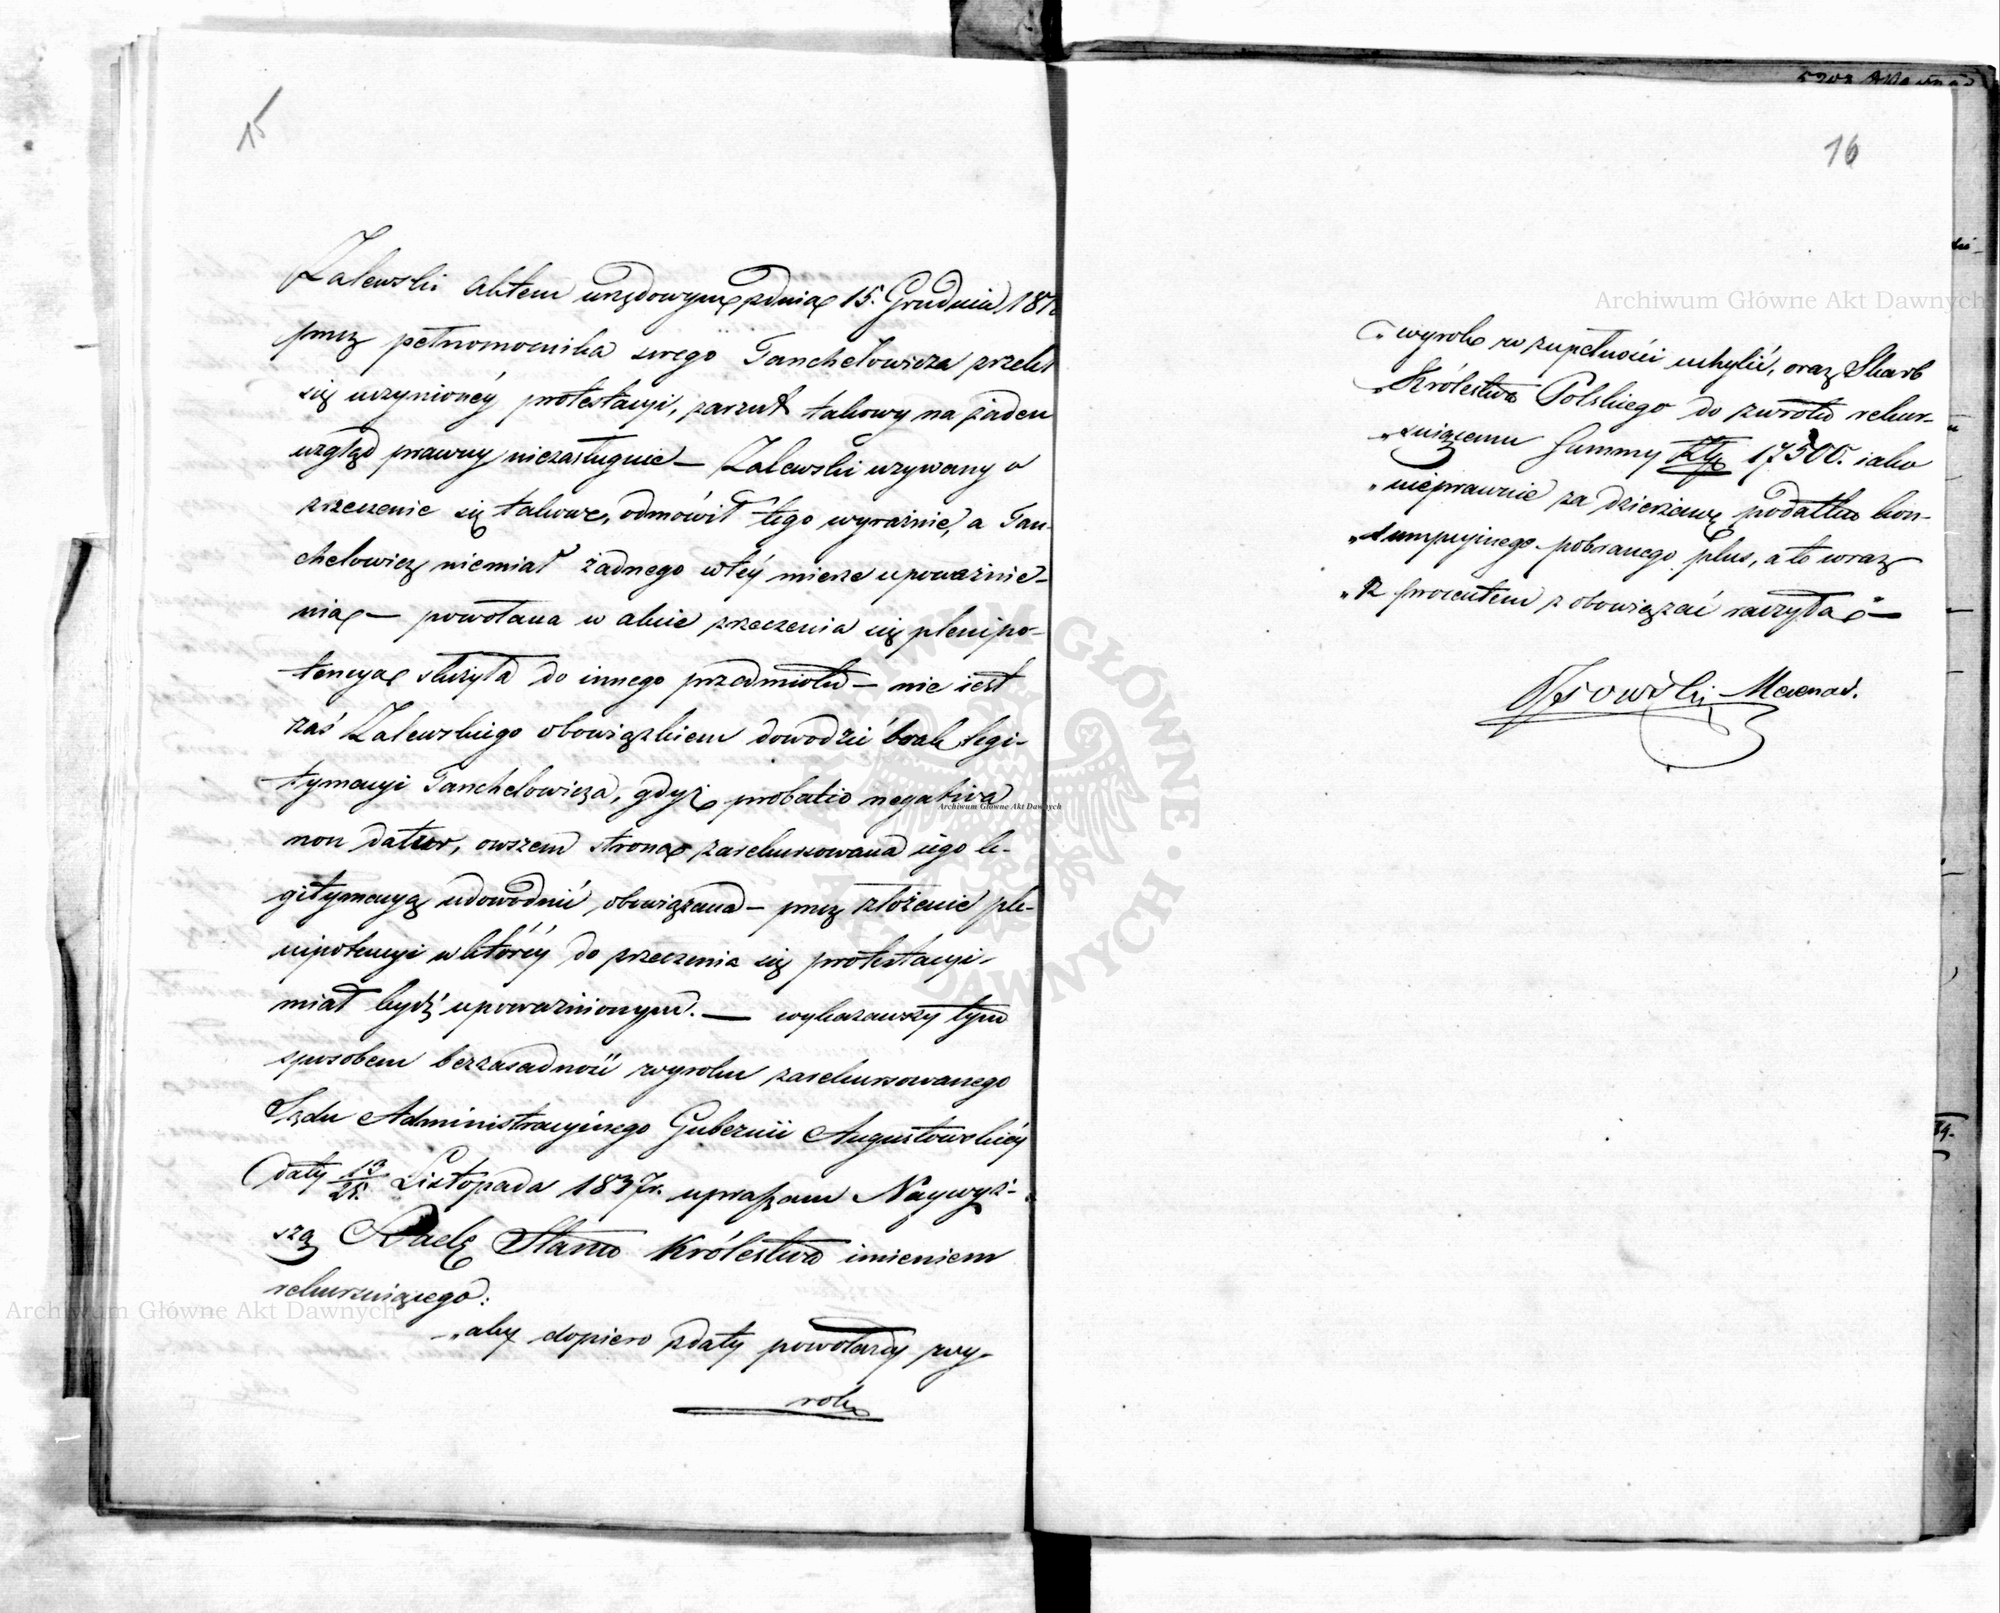 15
Zalewski aktem urzędowym zdnia 15. Grudnia 18
przez pełnomocnika swego Tanchelowicza zrzekł
się uczynionéy protestacyi, zarzut takowy na żaden
wzgląd prawny niezasługuie — Zalewski wzywany o
zrzeczenie się takowe, odmówił tego wyraźnie, a Tan-
chelowicz niemiał żadnego wtéy mierze upoważnie-
nia — powołana w akcie zrzeczenia się plenipo-
tencya służyła do innego przedmiotu — nie iest
zaś Zalewskiego obowiązkiem dowodzić brak legi-
tymacyi Tanchelowicza, gdyż probatio negativa
non datur, owszem strona zarekursowana iego le-
gitymacyą udowodnić obowiązana — przez złożenie ple-
nipotencyi w któréy do zrzeczenia się protestacyi
miał bydź upoważnionym. — wykazawszy tym
sposobem bezzasadność wyroku zarekursowanego
Sądu Administracyinego Gubernii Augustowskiéy
daty 13/25. Listopada 1837r. upraszam Naywyż-
szą Radę Stanu Królestwa imieniem
rekursuiącego:
„aby dopiero zdaty powołany wy-
rok
16
„wyrok w zupełności uchylić, oraz Skarb
„Królestwa Polskiego do zwrotu rekur-
„suiącemu Summy Złp 17500. iako
„nieprawnie za dzierżawę podatku kon-
„sumpcyinego pobranego plus, a to wraz
„z procentem zobowiązać raczyła" —
Mecenas.
Archiwum Główne Akt Dawnych
Archiwum Główne Akt Dawnych
Archiwum Główne Akt Dawnych
ARCHIWUM GŁÓWNE AKT DAWNYCH